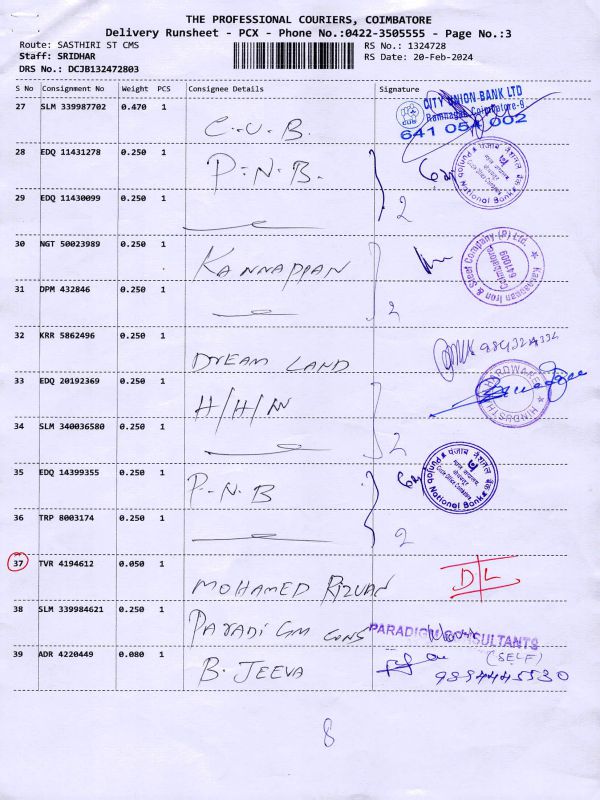 THE PROFESSIONAL COURIERS, COIMBATORE
Delivery Runsheet - PCX - Phone No.:0422-3505555 - Page No.:3
Route: SASTHIRI ST CMS
RS No.: 1324728
Staff: SRIDHAR
RS Date: 20-Feb-2024
DRS No.: DCJB132472803
S No Consignment No Weight PCS Consignee Details Signature
27 SLM 339987702 0.470 1 C.U.B.
CITY UNION BANK LTD
Ramnagar, Coimbatore-9
641 054 002
28 EDQ 11431278 0.250 1 P.N.B.
पंजाब नैशनल बैंक
Punjab National Bank
29 EDQ 11430099 0.250 1
2
30 NGT 50023989 0.250 1 KANNAPIAN
Kannappan Iron & Steel Company (P) Ltd.
Coimbatore
641009
31 DPM 432846 0.250 1
2
32 KRR 5862496 0.250 1 DREAM LAND
33 EDQ 20192369 0.250 1 H/H/W
HINDUSTH HARDWARE
34 SLM 340036580 0.250 1
2
35 EDQ 14399355 0.250 1 P-N-B
पंजाब नैशनल बैंक
Punjab National Bank
36 TRP 8003174 0.250 1
2
37 TVR 4194612 0.050 1 MOHAMED RIZUAN
D/L
38 SLM 339984621 0.250 1 PARADIGM CONS
PARADIGM CONSULTANTS
39 ADR 4220449 0.080 1 B. JEEVA
(SELF)
9894445530
8